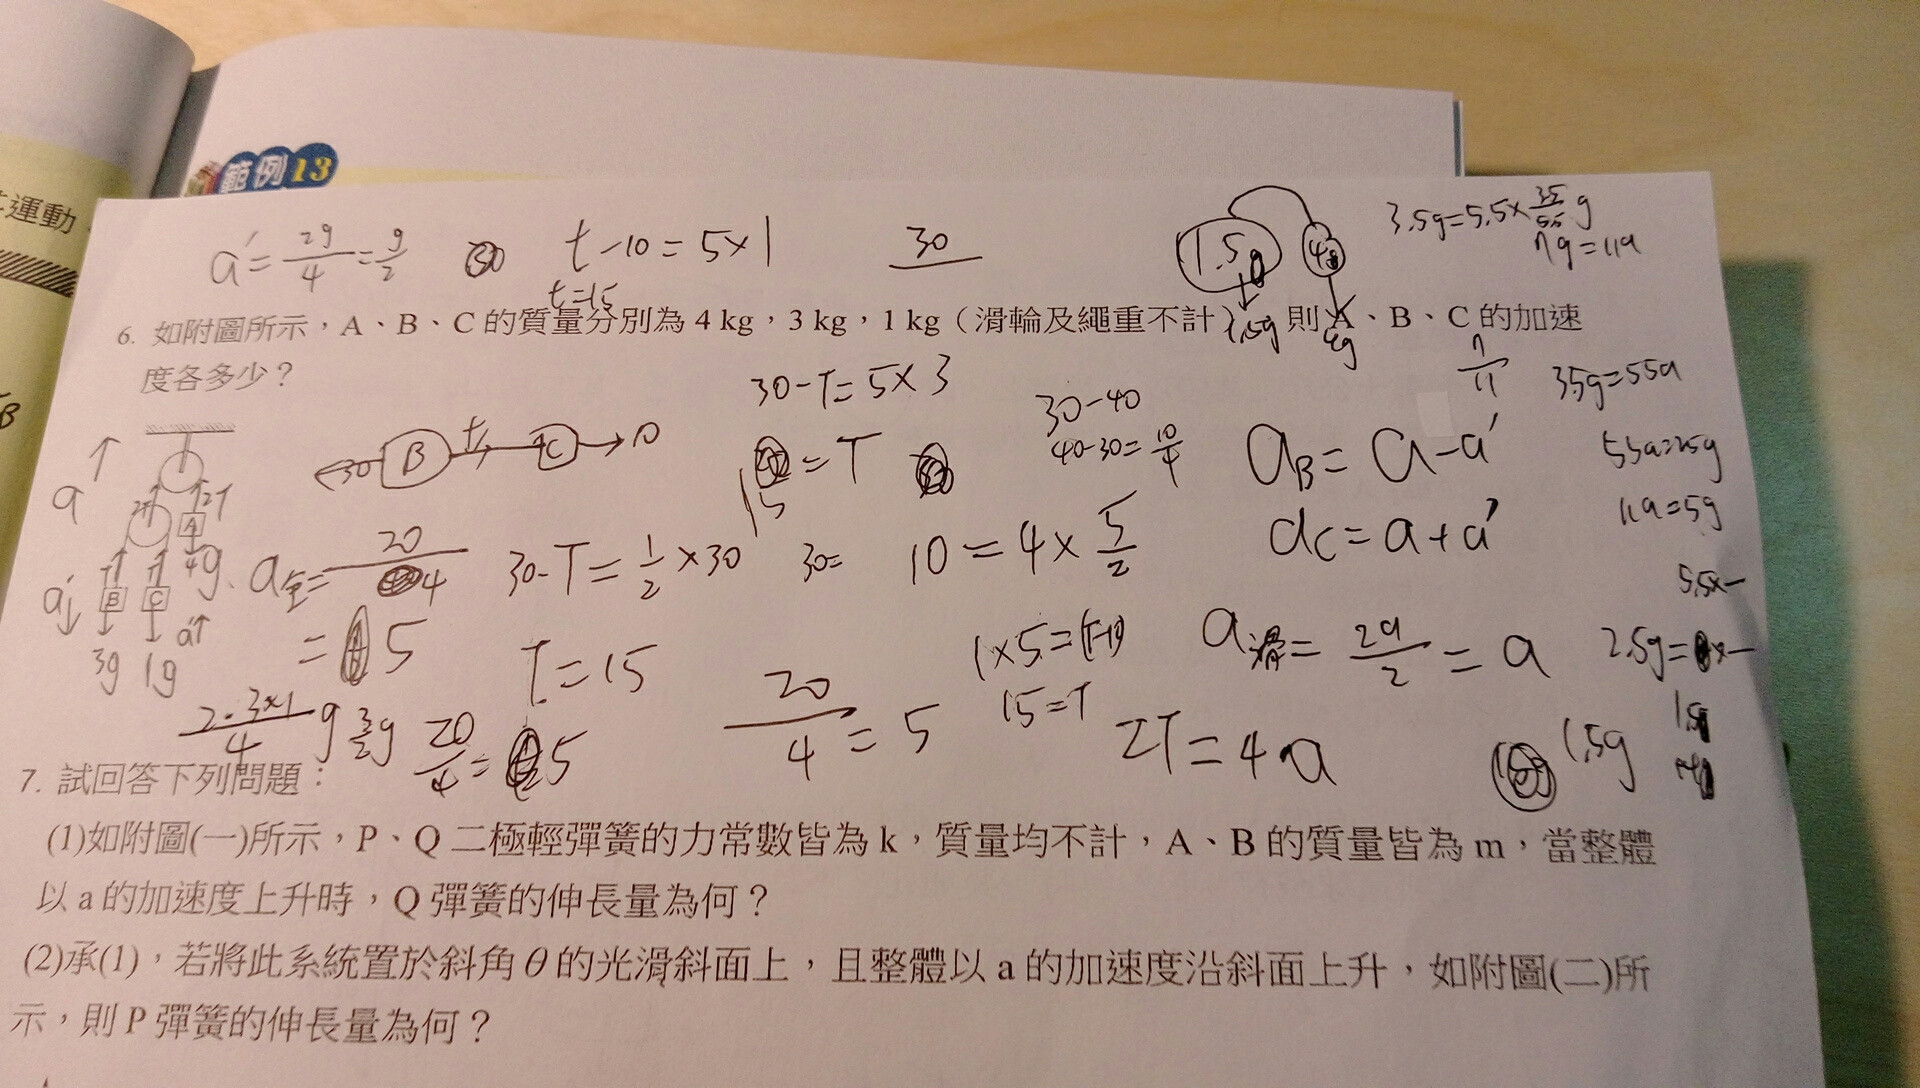 範例13
運動
a'=2g/4=g/2
t-10=5×1
30
1.5g
3.5g=5.5×35/55g
7g=11a
t=15
6. 如附圖所示,A、B、C的質量分別為4 kg,3 kg,1 kg(滑輪及繩重不計),則A、B、C的加速
度各多少?
4g
7/11
30-T=5×3
30-40
35g=55a
B
t
C
10
30
=T
15
40-30=10/4
aB=a-a'
55a=25g
a
2T
2T
A
11a=5g
4g
a全=20/4
30-T=1/2×30
30=
10=4×5/2
aC=a+a'
T
T
B
C
a'
a'
3g
1g
=5
T=15
1×5=(T-10)
a滑=2a/2=a
5.5×-
2.5g=
20/4=5
15=T
2T=4a
1.5g
2·3×1/4 g
3/2g
20/4=5
7. 試回答下列問題:
(1)如附圖(一)所示,P、Q二極輕彈簧的力常數皆為k,質量均不計,A、B的質量皆為m,當整體
以a的加速度上升時,Q彈簧的伸長量為何?
(2)承(1),若將此系統置於斜角θ的光滑斜面上,且整體以a的加速度沿斜面上升,如附圖(二)所
示,則P彈簧的伸長量為何?